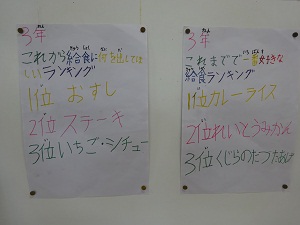 3年
これから給食に何を出してほし
いいランキング
1位 おすし
2位 ステーキ
3位 いちご・シチュー
3年
これまでで一番好きな
給食ランキング
1位カレーライス
2位れいとうみかん
3位くじらのたつたあげ